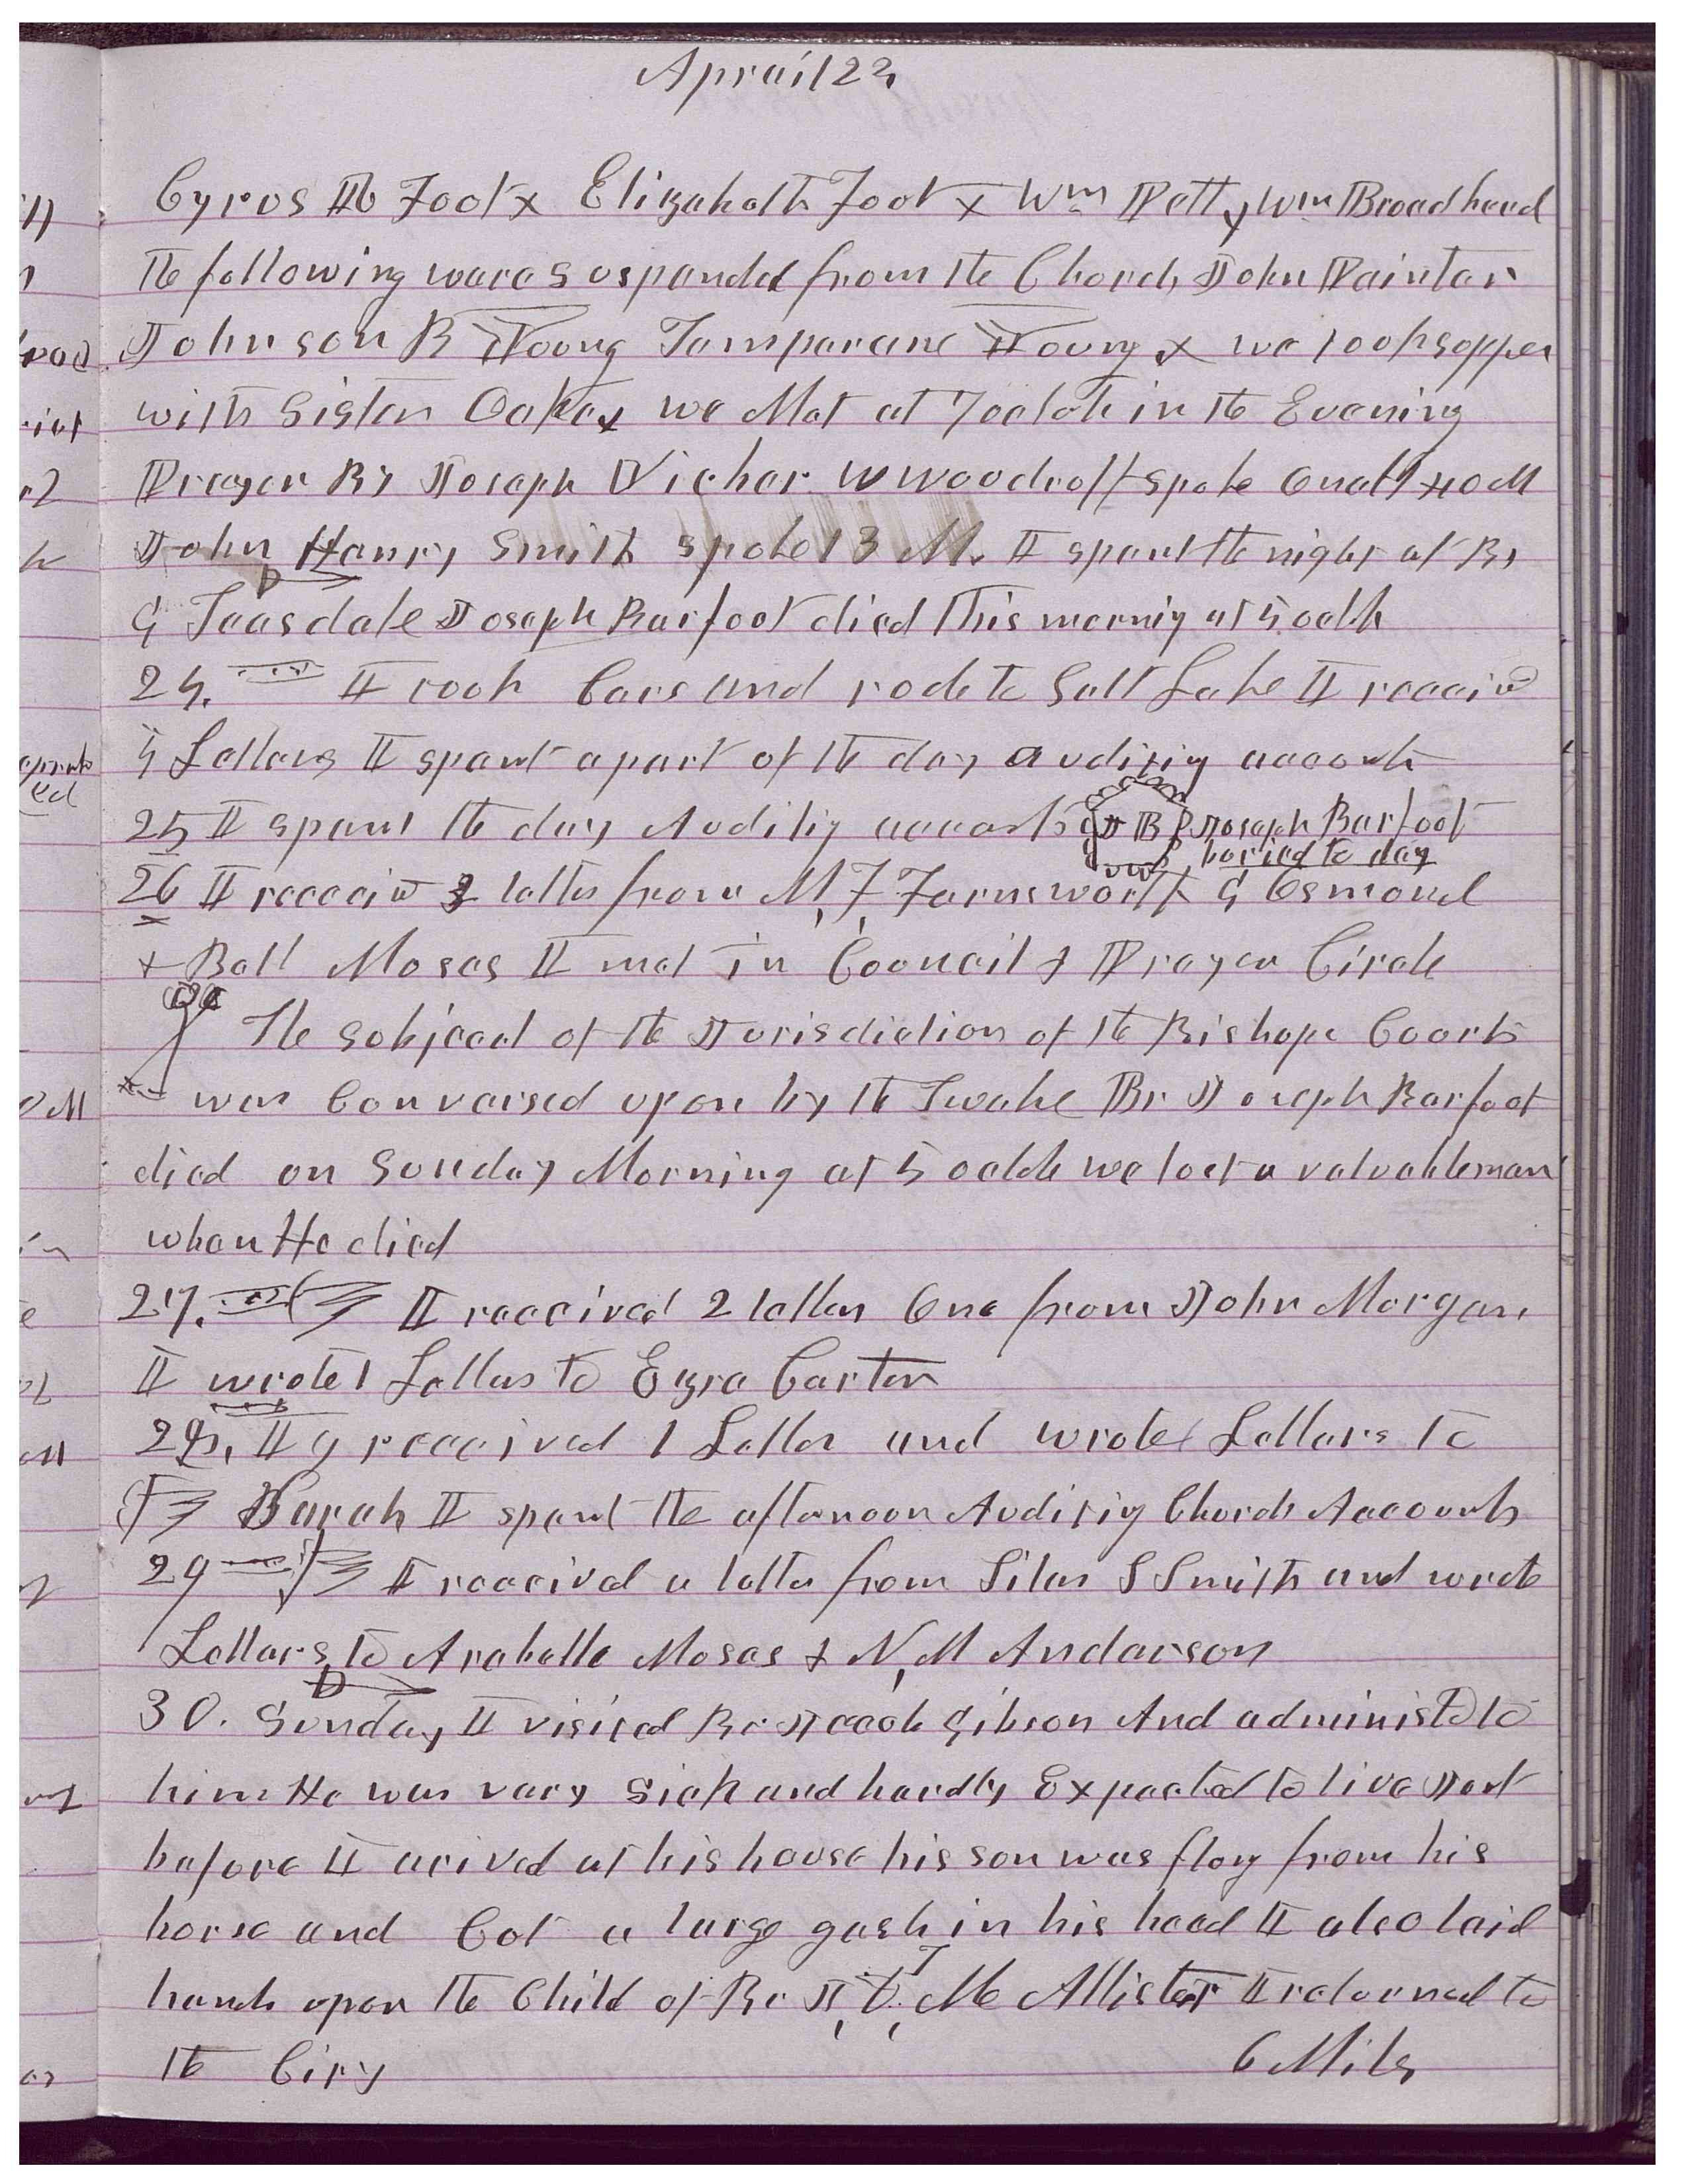 Aprail 23
Cyrus H Foot & Elizabeth Foot & Wm Pett & Wm Broadhead
The following ware suspended from the Church John Painter
Johnson B Young Temperane Young & we took supper
with Sister Oakey we Met at 7 oclok in the Evening
Prayer By Joseph Vickar W Woodruff spoke One H & 10 M
John Henry Smith spoke 13 M. I spent the night at Br
G Teasdale Joseph Barfoot died this morning at 5 oclk
24. I took Cars and rode to Salt Lake I receivd
4 Letters I spent a part of the day auditing accounts
25 I spent the day Auditing accounts JB Joseph Barfoot
buried to day
26 I receeivd 3 letters from M, F, Farnsworth G Osmond
& Bell Moses I met in Council & Prayer Circle
The subjeect of the Jurisdiction of the Bishops Courts
was Conversed upon by the Twelve Br Joseph Barfoot
died on Sunday Morning at 5 oclok we lost a valuable man
when He died
27. I received 2 letters One from John Morgan
I wrote 1 Letters to Ezra Carter
28. I received 1 Letter and wrote 1 Letters to
Sarah I spent the afternoon Auditing Church Accounts
29 I received a letter from Silas S Smith and wrote
Letters to Arabelle Moses & N, M Anderson
30. Sunday I visited Br Jacob Gibson And administd to
him He was very Sick and hardly Expected to live Just
before I arived at his house his son was flong from his
horse and Cut a large gash in his head I also laid
hands upon the Child of Br J, D, T Mc Allister I returned to
the City 6 Miles